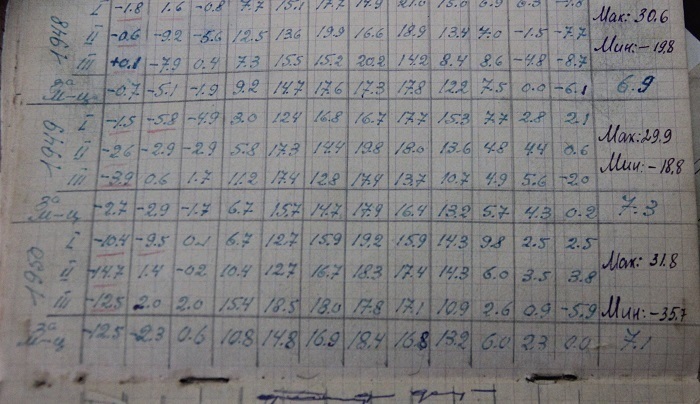 I -1.8 1.6 -0.8 7.7 15.1 17.7 17.9 21.0 15.0 6.9 6.3 -1.8 Мак: 30.6
1948 II -0.6 -9.2 -5.6 12.5 13.6 19.9 16.6 18.9 13.4 7.0 -1.5 -7.7 Мин: -19.8
III +0.1 -7.9 0.4 7.3 15.5 15.2 20.2 14.2 8.4 8.6 -4.8 -8.7
За м-ц -0.7 -5.1 -1.9 9.2 14.7 17.6 17.3 17.8 12.2 7.5 0.0 -6.1 6.9
I -1.5 -5.8 -4.9 3.0 12.4 16.8 16.7 17.7 15.3 7.7 2.8 2.1 Мак: 29.9
1949 II -2.6 -2.9 -2.9 5.8 17.3 14.4 19.8 18.0 13.6 4.8 4.4 0.6 Мин: -18.8
III -3.9 0.6 1.7 11.2 17.4 12.8 17.4 13.7 10.7 4.9 5.6 -2.0
За м-ц -2.7 -2.9 -1.7 6.7 15.7 14.7 17.9 16.4 13.2 5.7 4.3 0.2 7.3
I -10.4 -9.5 0.1 6.7 12.7 15.9 19.2 15.9 14.3 9.8 2.5 2.5 Мак: 31.8
1950 II -14.7 1.4 -0.2 10.4 12.7 16.7 18.3 17.4 14.3 6.0 3.5 3.8
III -12.5 2.0 2.0 15.4 18.5 18.0 17.8 17.1 10.9 2.6 0.9 -5.9 Мин: -35.7
За м-ц -12.5 -2.3 0.6 10.8 14.8 16.9 18.4 16.8 13.2 6.0 2.3 0.0 7.1